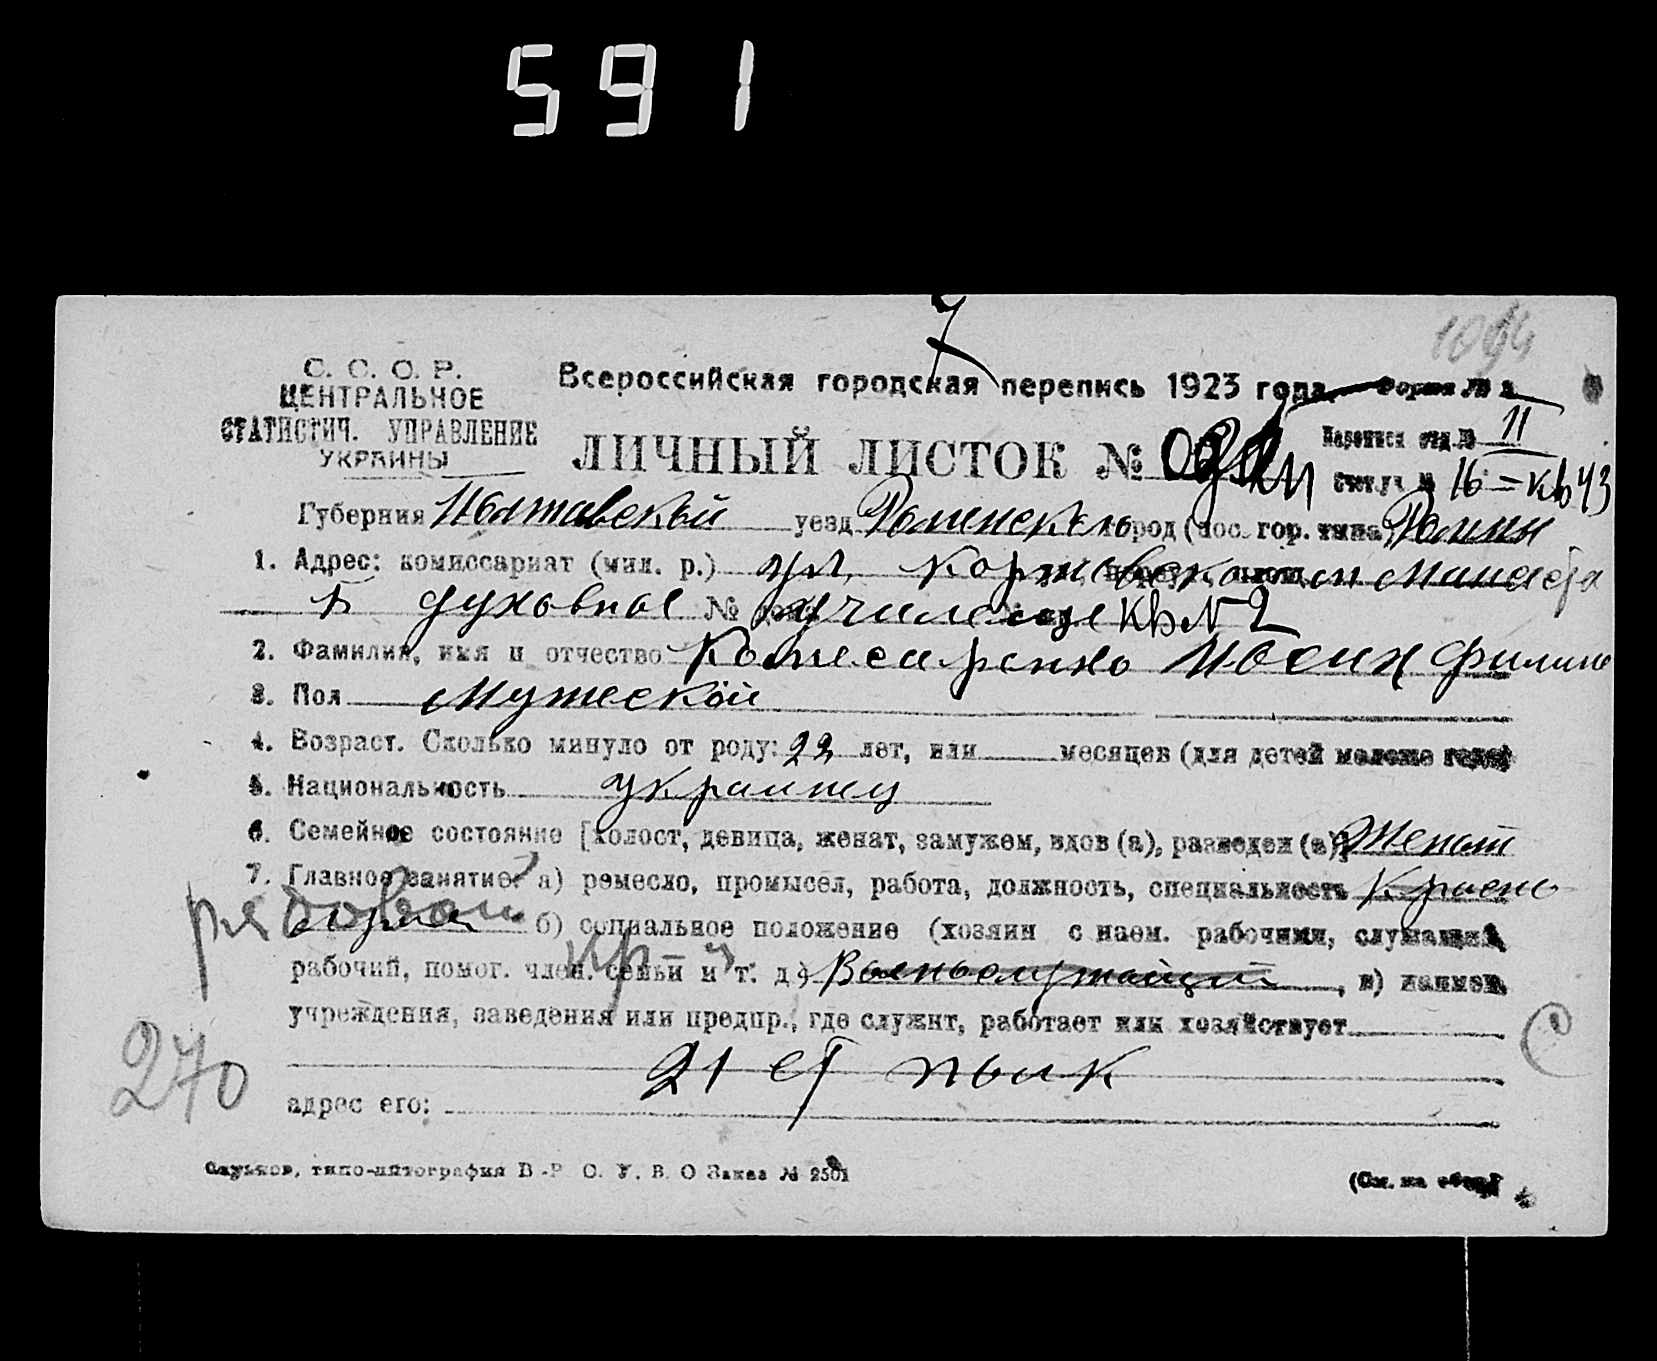 591
7
1094
С. С. С. Р.
ЦЕНТРАЛЬНОЕ
СТАТИСТИЧ. УПРАВЛЕНИЕ
УКРАИНЫ
Всероссийская городская перепись 1923 года. Форма №
ЛИЧНЫЙ ЛИСТОК №
Переписн отд. № 11
Счет.уч № 16 = кв 43
Губерния Полтавской уезд Роменск город (пос. гор. типа) Ромны
1. Адрес: комиссариат (мил. р.) ул.
Б духовное № училище кв N 2
2. Фамилия, имя и отчество
3. Пол Мужеской
4. Возраст. Сколько минуло от роду: 22 лет, или месяцев (для детей моложе года)
5. Национальность украинец
6. Семейное состояние [холост, девица, женат, замужем, вдов (а), разведен (а)] Женат
7. Главное занятие: а) ремесло, промысел, работа, должность, специальность Красно
рядовой б) социальное положение (хозяин с наем. рабочими, служащий,
рабочий, помог. член. семьи и т. д.) Военнослужащий, в) наимен.
учреждения, заведения или предпр., где служит, работает или хозяйствует
21 полк
270
адрес его:
типо-литография В.-Р. С. У. В. О Заказ № 2501
(См. на